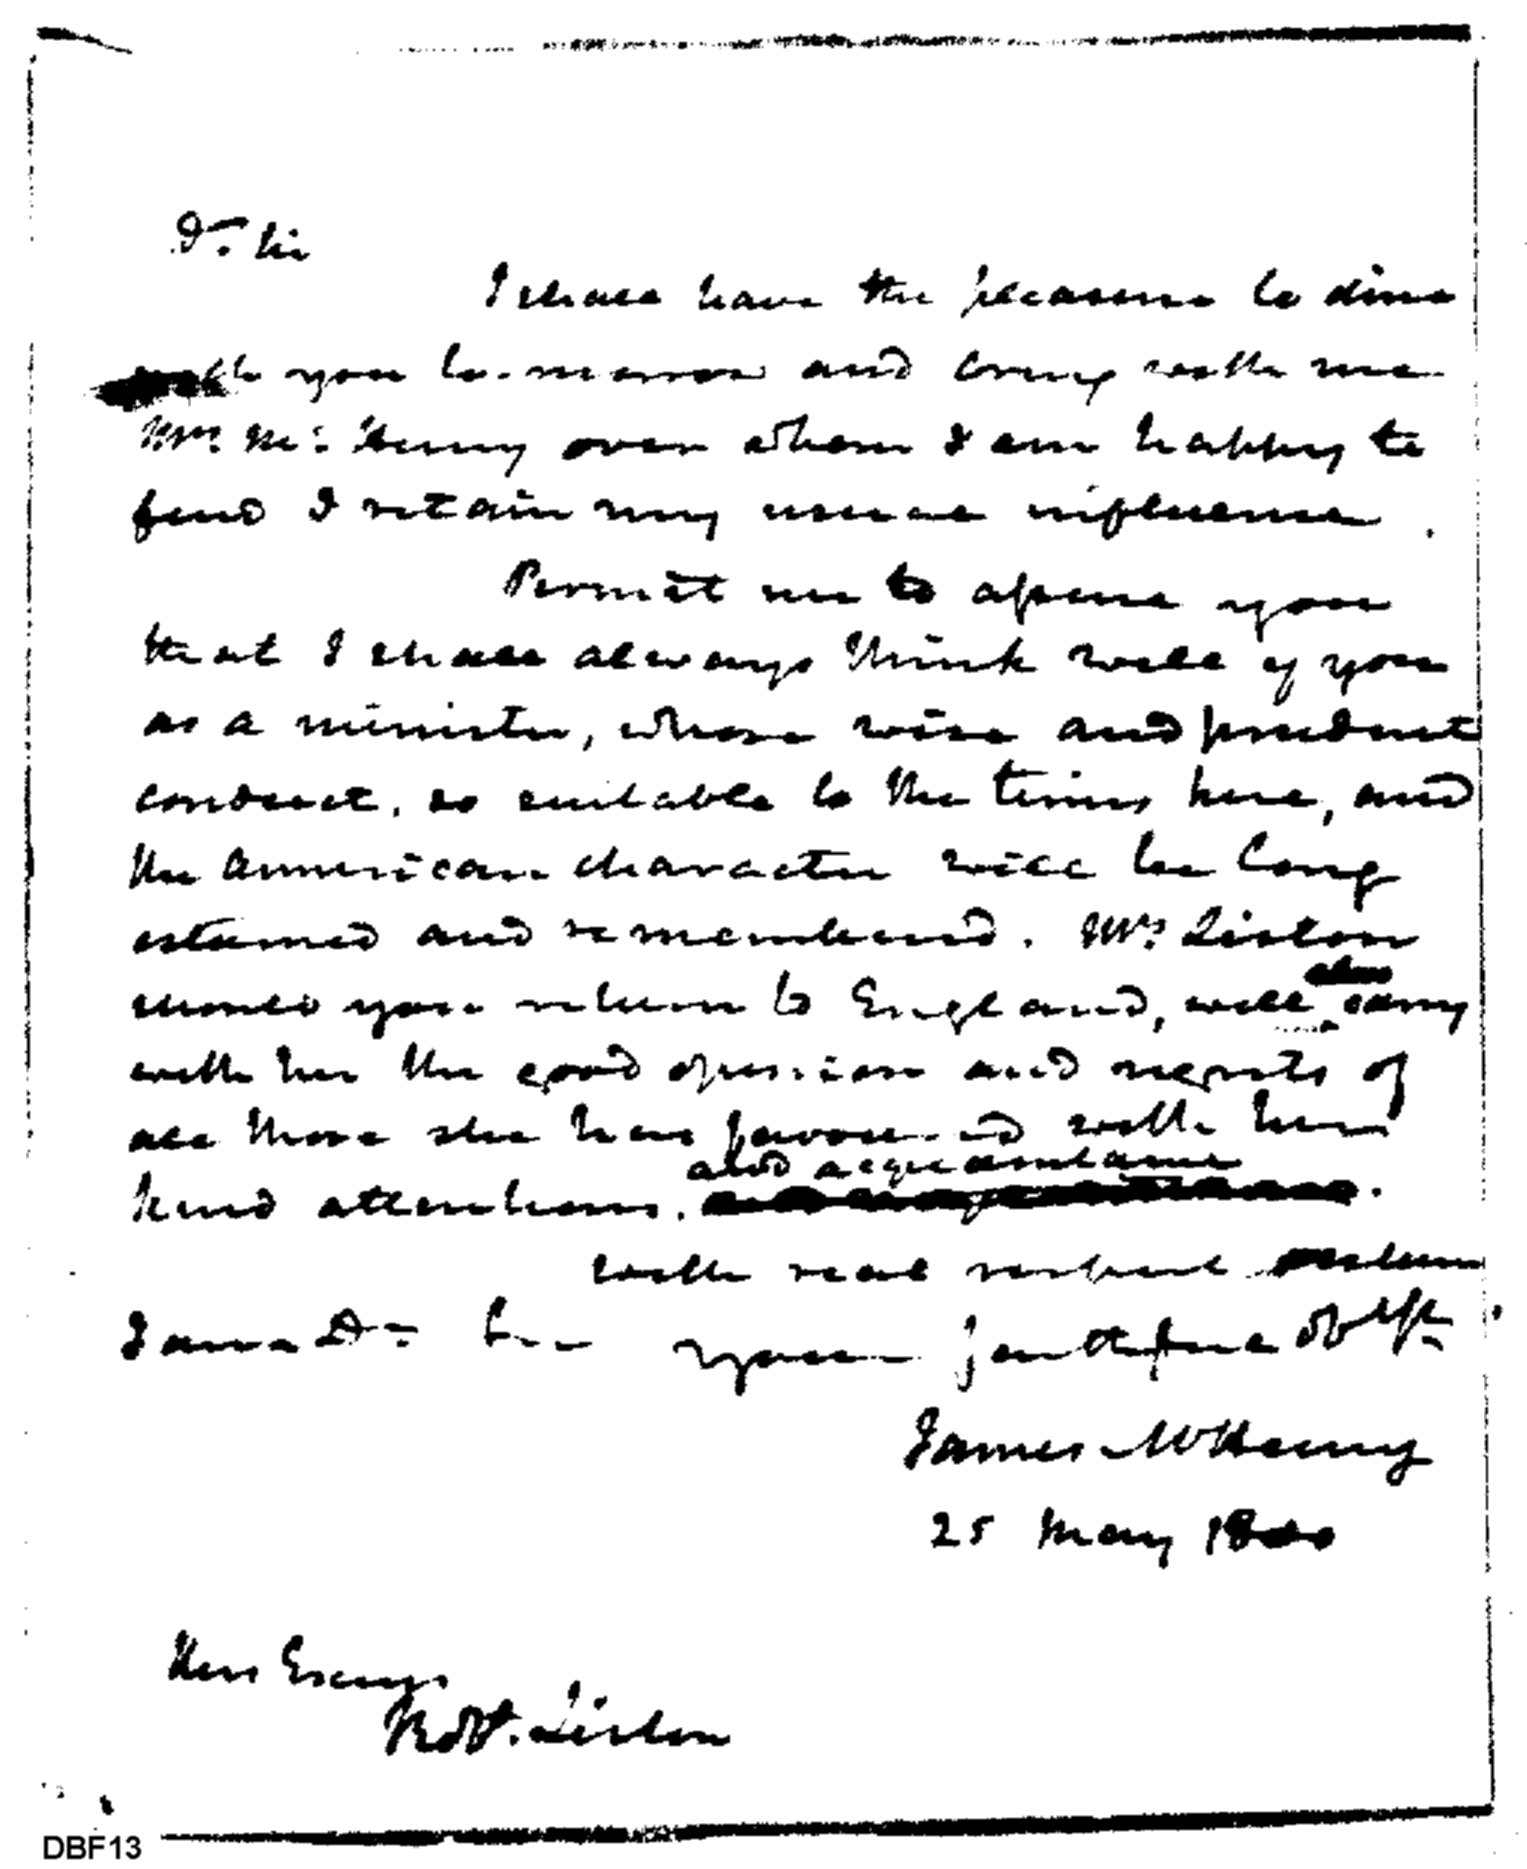 Dr. Sir
I shall have the pleasure to dine
with you to-morrow and bring with me
Mrs. Mc:Henry over whom I am happy to
find I retain my usual influence.
Permit me to assure you
that I shall always think well of you
as a minister, whose wise and prudent
conduct, so suitable to the times here, and
the American character will be long
esteemed and remembered. Mrs. Liston
also
should you return to England, will carry
with her the good opinion and regrets of
all those she has favoured with her
and acquaintance
kind attentions.
with real respect esteem
I am Dr. Sir your faithful obt st
James McHenry
25 May 1800
His Excys
Robt. Liston
DBF13